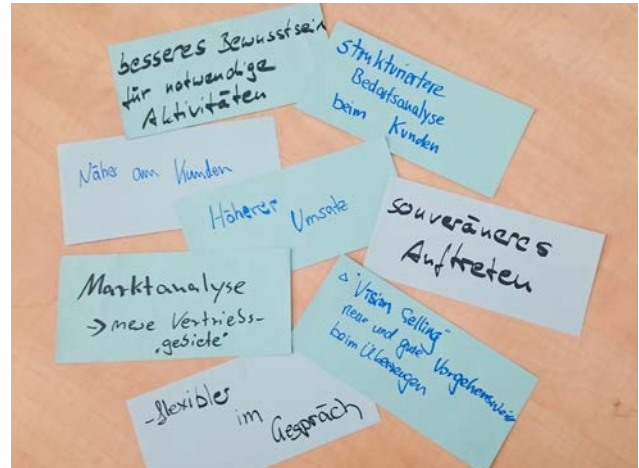 besseres Bewusstsein
für notwendige
Aktivitäten
strukturiertere
Bedarfsanalyse
beim Kunden
Näher am Kunden
Höherer Umsatz
souveräneres
Auftreten
Marktanalyse
-> neue Vertriebs-
"gebiete"
"Vision Selling"
neue und gute Vorgehensweise
beim Überzeugen
-flexibler
im
Gespräch